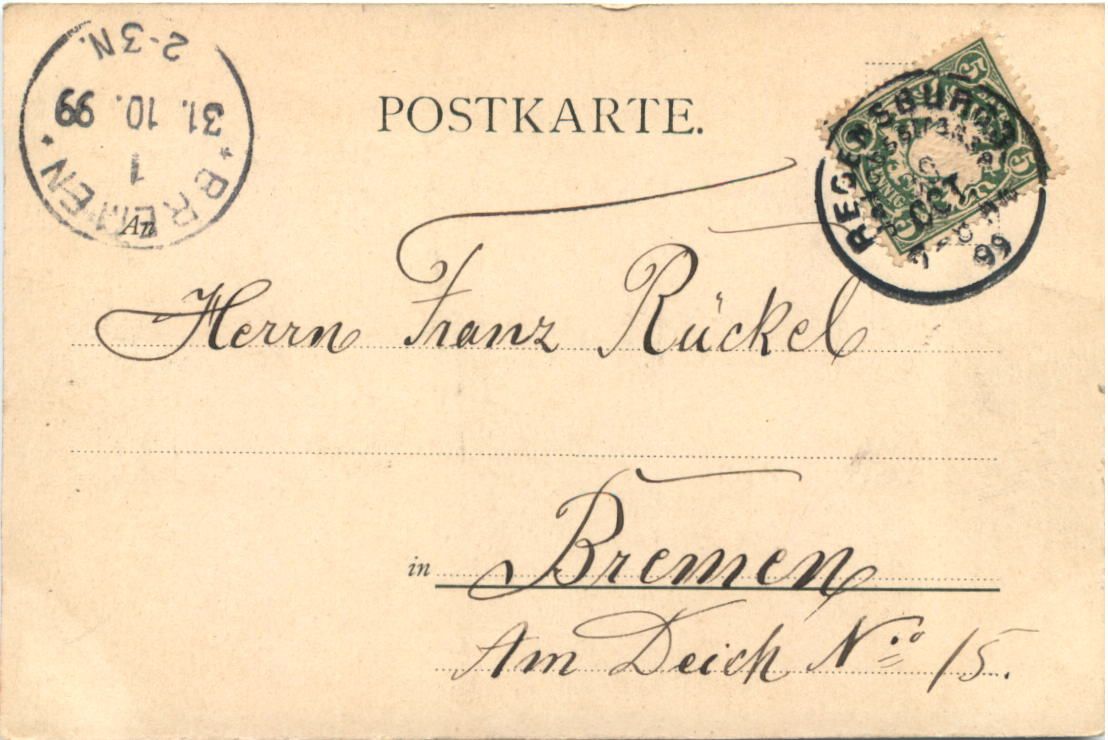 2-3N.
31.10.99
1
* BREMEN *
POSTKARTE.
5
5
REGENSBURG
OCT.
99
An
Herrn Franz Rückel
in Bremen
Am Deich No 15.